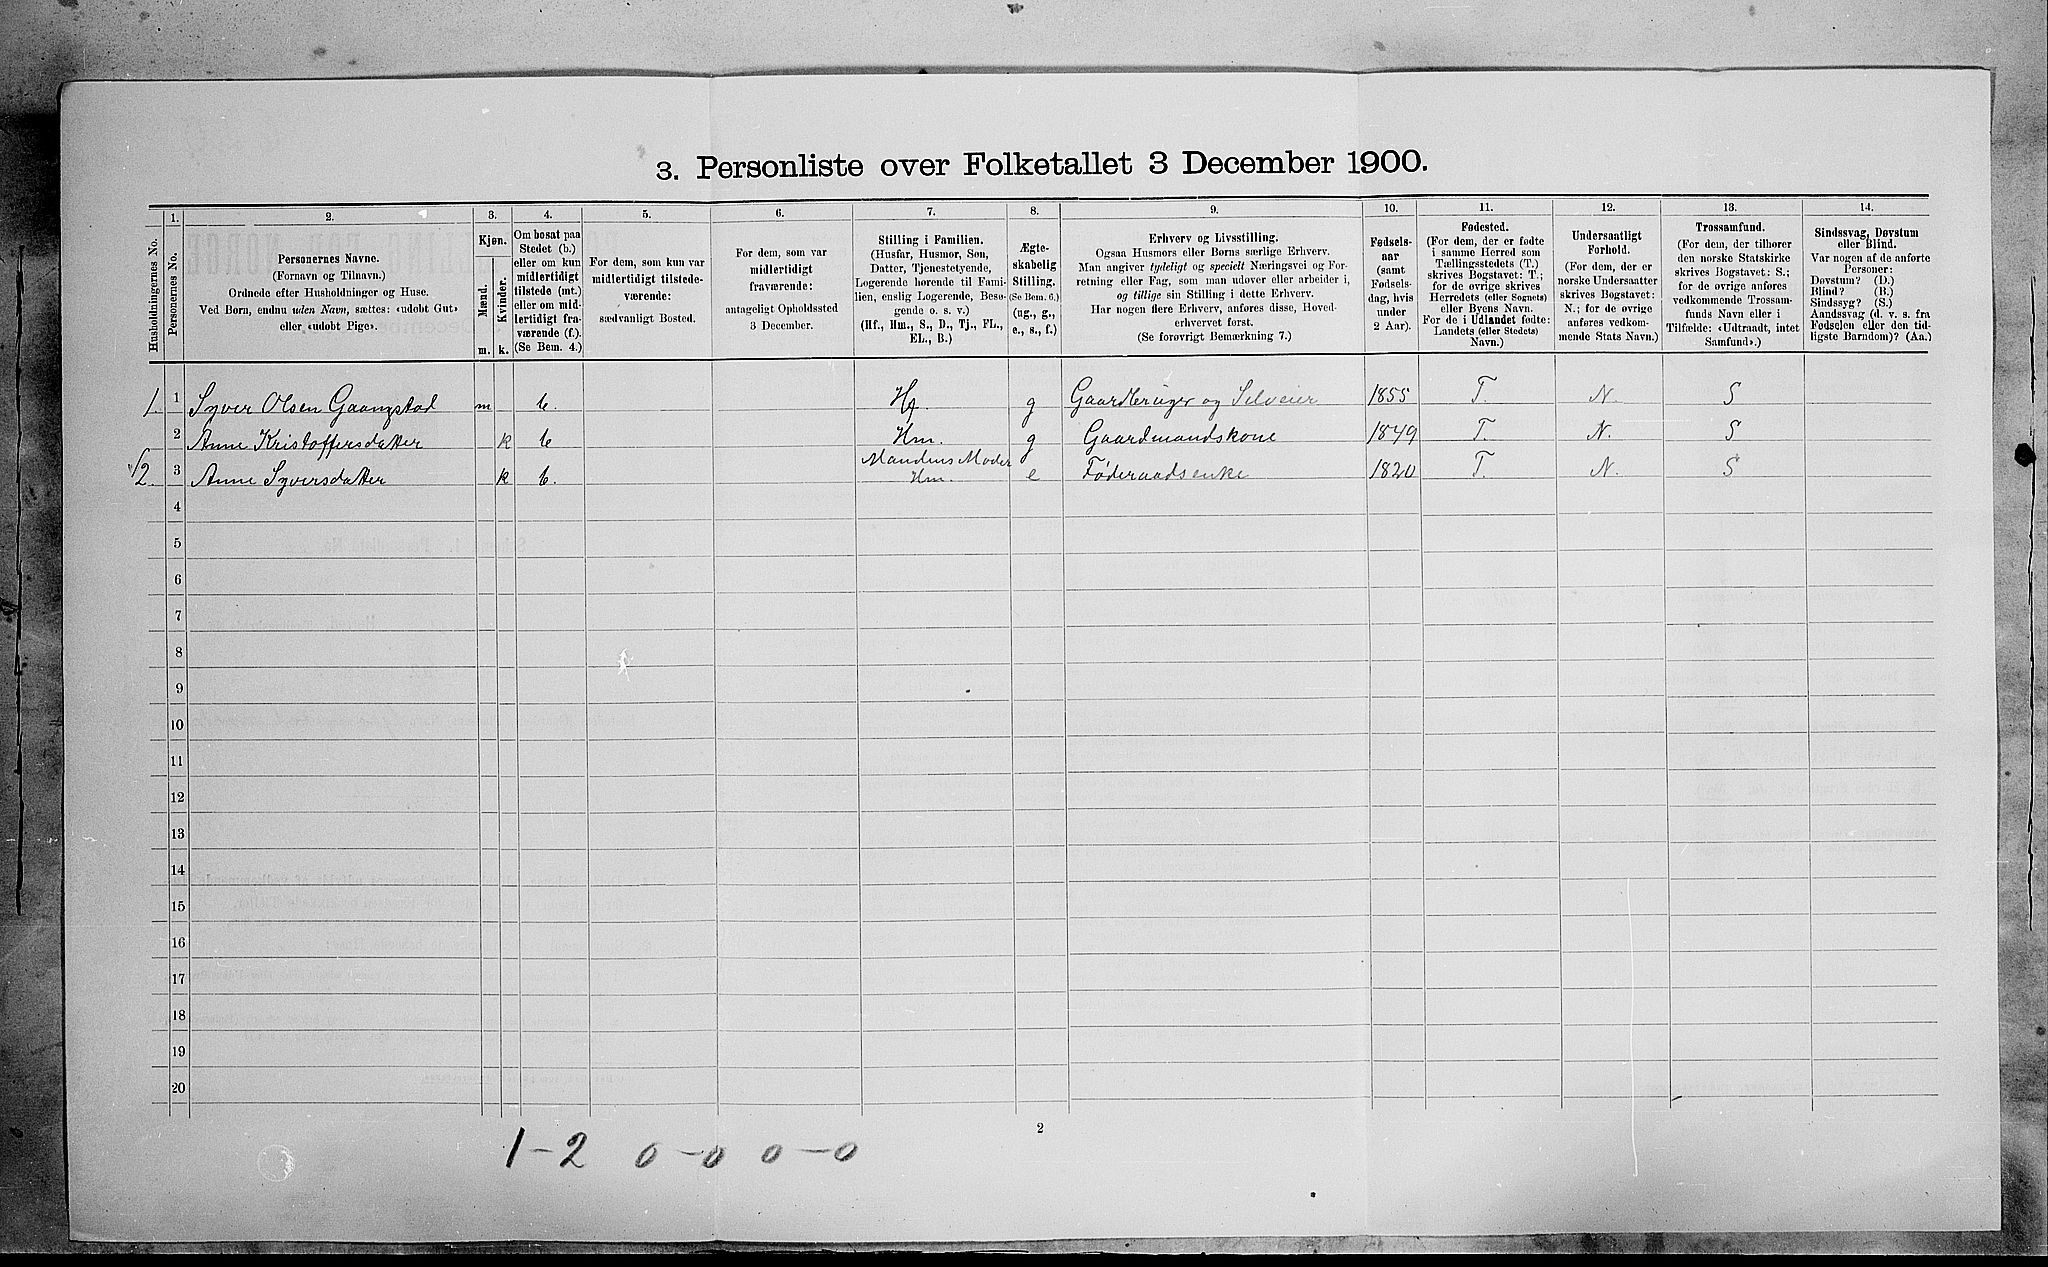 3. Personliste over Folketallet 3 December 1900.
1. 2. 3. 4. 5. 6. 7. 8. 9. 10. 11. 12. 13. 14.
Husholdningernes No.
Personernes No.
Personernes Navne.
(Fornavn og Tilnavn.)
Ordnede efter Husholdninger og Huse.
Ved Børn, endnu uden Navn, sættes: «udøbt Gut»
eller «udøbt Pige».
Kjøn.
Mænd.
Kvinder.
m. k.
Om bosat paa
Stedet (b.)
eller om kun
midlertidigt
tilstede (mt.)
eller om mid-
lertidigt fra-
værende (f.).
(Se Bem. 4.)
For dem, som kun var
midlertidigt tilstede-
værende:
sædvanligt Bosted.
For dem, som var
midlertidigt
fraværende:
antageligt Opholdssted
3 December.
Stilling i Familien.
(Husfar, Husmor, Søn,
Datter, Tjenestetyende,
Logerende hørende til Fami-
lien, enslig Logerende, Besø-
gende o. s. v.)
(Hf., Hm., S., D., Tj., FL.,
EL., B.)
Ægte-
skabelig
Stilling.
(Se Bem. 6.)
(ug., g.,
e., s., f.)
Erhverv og Livsstilling.
Ogsaa Husmors eller Børns særlige Erhverv.
Man angiver tydeligt og specielt Næringsvei og For-
retning eller Fag, som man udøver eller arbeider i,
og tillige sin Stilling i dette Erhverv.
Har nogen flere Erhverv, anføres disse, Hoved-
erhvervet først.
(Se forøvrigt Bemærkning 7.)
Fødsels-
aar
(samt
Fødsels-
dag, hvis
under
2 Aar).
Fødested.
(For dem, der er fødte
i samme Herred som
Tællingsstedets (T.)
skrives Bogstavet: T.;
for de øvrige skrives
Herredets (eller Sognets)
eller Byens Navn.
For de i Udlandet fødte:
Landets (eller Stedets)
Navn.)
Undersaatligt
Forhold.
(For dem, der er
norske Undersaatter
skrives Bogstavet:
N.; for de øvrige
anføres vedkom-
mende Stats Navn.)
Trossamfund.
(For dem, der tilhører
den norske Statskirke
skrives Bogstavet: S.;
for de øvrige anføres
vedkommende Trossam-
funds Navn eller i
Tilfælde: «Udtraadt, intet
Samfund».)
Sindssvag, Døvstum
eller Blind.
Var nogen af de anførte
Personer:
Døvstum? (D.)
Blind? (B.)
Sindssyg? (S.)
Aandssvag (d. v. s. fra
Fødselen eller den tid-
ligste Barndom)? (Aa.)
1. 1 Syver Olsen Gaangstad m b. Hf. g Gaardbruger og Selveier 1855 T. N. S
2 Anne Kristoffersdatter k b Hm. g Gaardmandskone 1849 T. N. S
2. 3 Anne Syversdatter k b. Mandens Moder Hm. e Føderaadsenke 1820 T. N. S
4
5
6
7
8
9
10
11
12
13
14
15
16
17
18
19
20
2
1-2 0-0 0-0